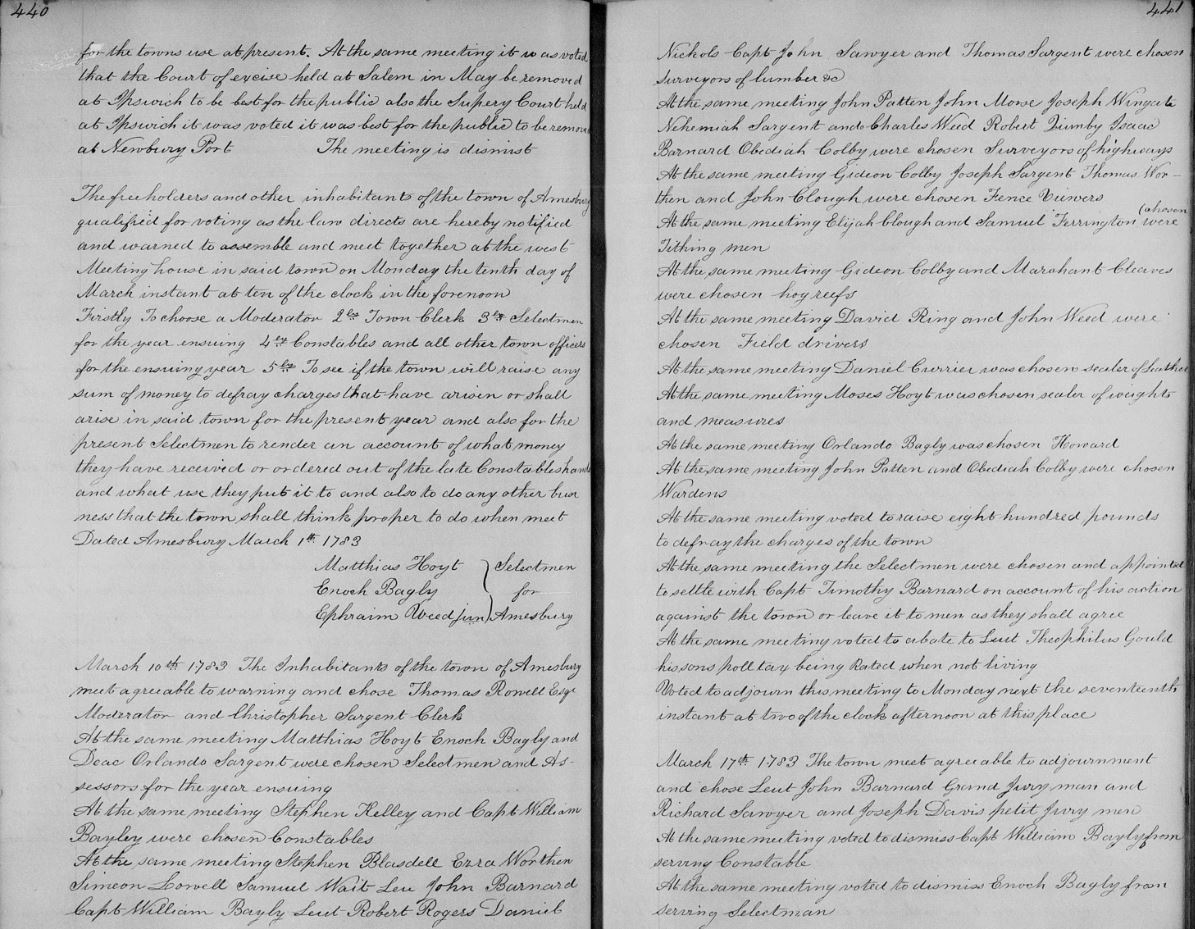 440
for the towns use at present. At the same meeting it was voted
that the Court of excise held at Salem in May be removed
at Ipswich to be best for the public also the Supery Court held
at Ipswich it was voted it was best for the public to be remov
at Newbury Port The meeting is dismist
The freeholders and other inhabitants of the town of Amesbury
qualified for voting as the law directs are hereby notified
and warned to assemble and meet together at the west
Meeting house in said town on Monday the tenth day of
March instant at ten of the clock in the forenoon
Firstly To choose a Moderator 2ly Town Clerk 3ly Selectmen
for the year ensuing 4ly Constables and all other town officers
for the ensuing year 5ly To see if the town will raise any
sum of money to defray charges that have arisin or shall
arise in said town for the present year and also for the
present Selectmen to render an account of what money
they have received or ordered out of the late Constables hands
and what use they put it to and also to do any other busi
ness that the town shall think proper to do when meet
Dated Amesbury March 1th 1783
Matthias Hoyt } Selectmen
Enoch Bagly } for
Ephraim Weed jun } Amesbury
March 10th 1783 The Inhabitants of the town of Amesbury
meet agreeable to warning and chose Thomas Rowell Esqr
Moderator and Christopher Sargent Clerk
At the same meeting Matthias Hoyt Enoch Bagly and
Deac Orlando Sargent were chosen Selectmen and As-
sessors for the year ensuing
At the same meeting Stephen Kelley and Capt William
Bayley were chosen Constables
At the same meeting Stephen Blasdell Ezra Worthen
Simeon Lowell Samuel Wait Leu John Barnard
Capt William Bayly Leut Robert Rogers Daniel
441
Nichols Capt John Sawyer and Thomas Sargent were chosen
surveyors of lumber &c
At the same meeting John Patten John Morse Joseph Wingate
Nehemiah Sargent and Charles Weed Robert Quimby Isaac
Barnard Obediah Colby were chosen Surveyors of highways
At the same meeting Gideon Colby Joseph Sargent Thomas Wor-
then and John Clough were chosen Fence Viewers
(chosen
At the same meeting Elijah Clough and Samuel Ferrington were
Tithing men
At the same meeting Gideon Colby and Marchant Cleaves
were chosen hogreefs
At the same meeting David Ring and John Weed were
chosen Field drivers
At the same meeting Daniel Currier was chosen sealer of leather
At the same meeting Moses Hoyt was chosen sealer of weights
and measures
At the same meeting Orlando Bagly was chosen Howard
At the same meeting John Patten and Obediah Colby were chosen
Wardens
At the same meeting voted to raise eight hundred pounds
to defray the charges of the town
At the same meeting the Selectmen were chosen and appointed
to settle with Capt Timothy Barnard on account of his action
against the town or leave it to men as they shall agree
At the same meeting voted to abate to Leut Theophilus Gould
his sons poll tax being Rated when not living
Voted to adjourn this meeting to Monday next the seventeenth
instant at two of the clock afternoon at this place
March 17th 1783 The town meet agreeable to adjournment
and chose Leut John Barnard Grand Jury man and
Richard Sawyer and Joseph Davis petit Jury men
At the same meeting voted to dismiss Capt William Bayly from
serving Constable
At the same meeting voted to dismiss Enoch Bagly from
serving Selectman